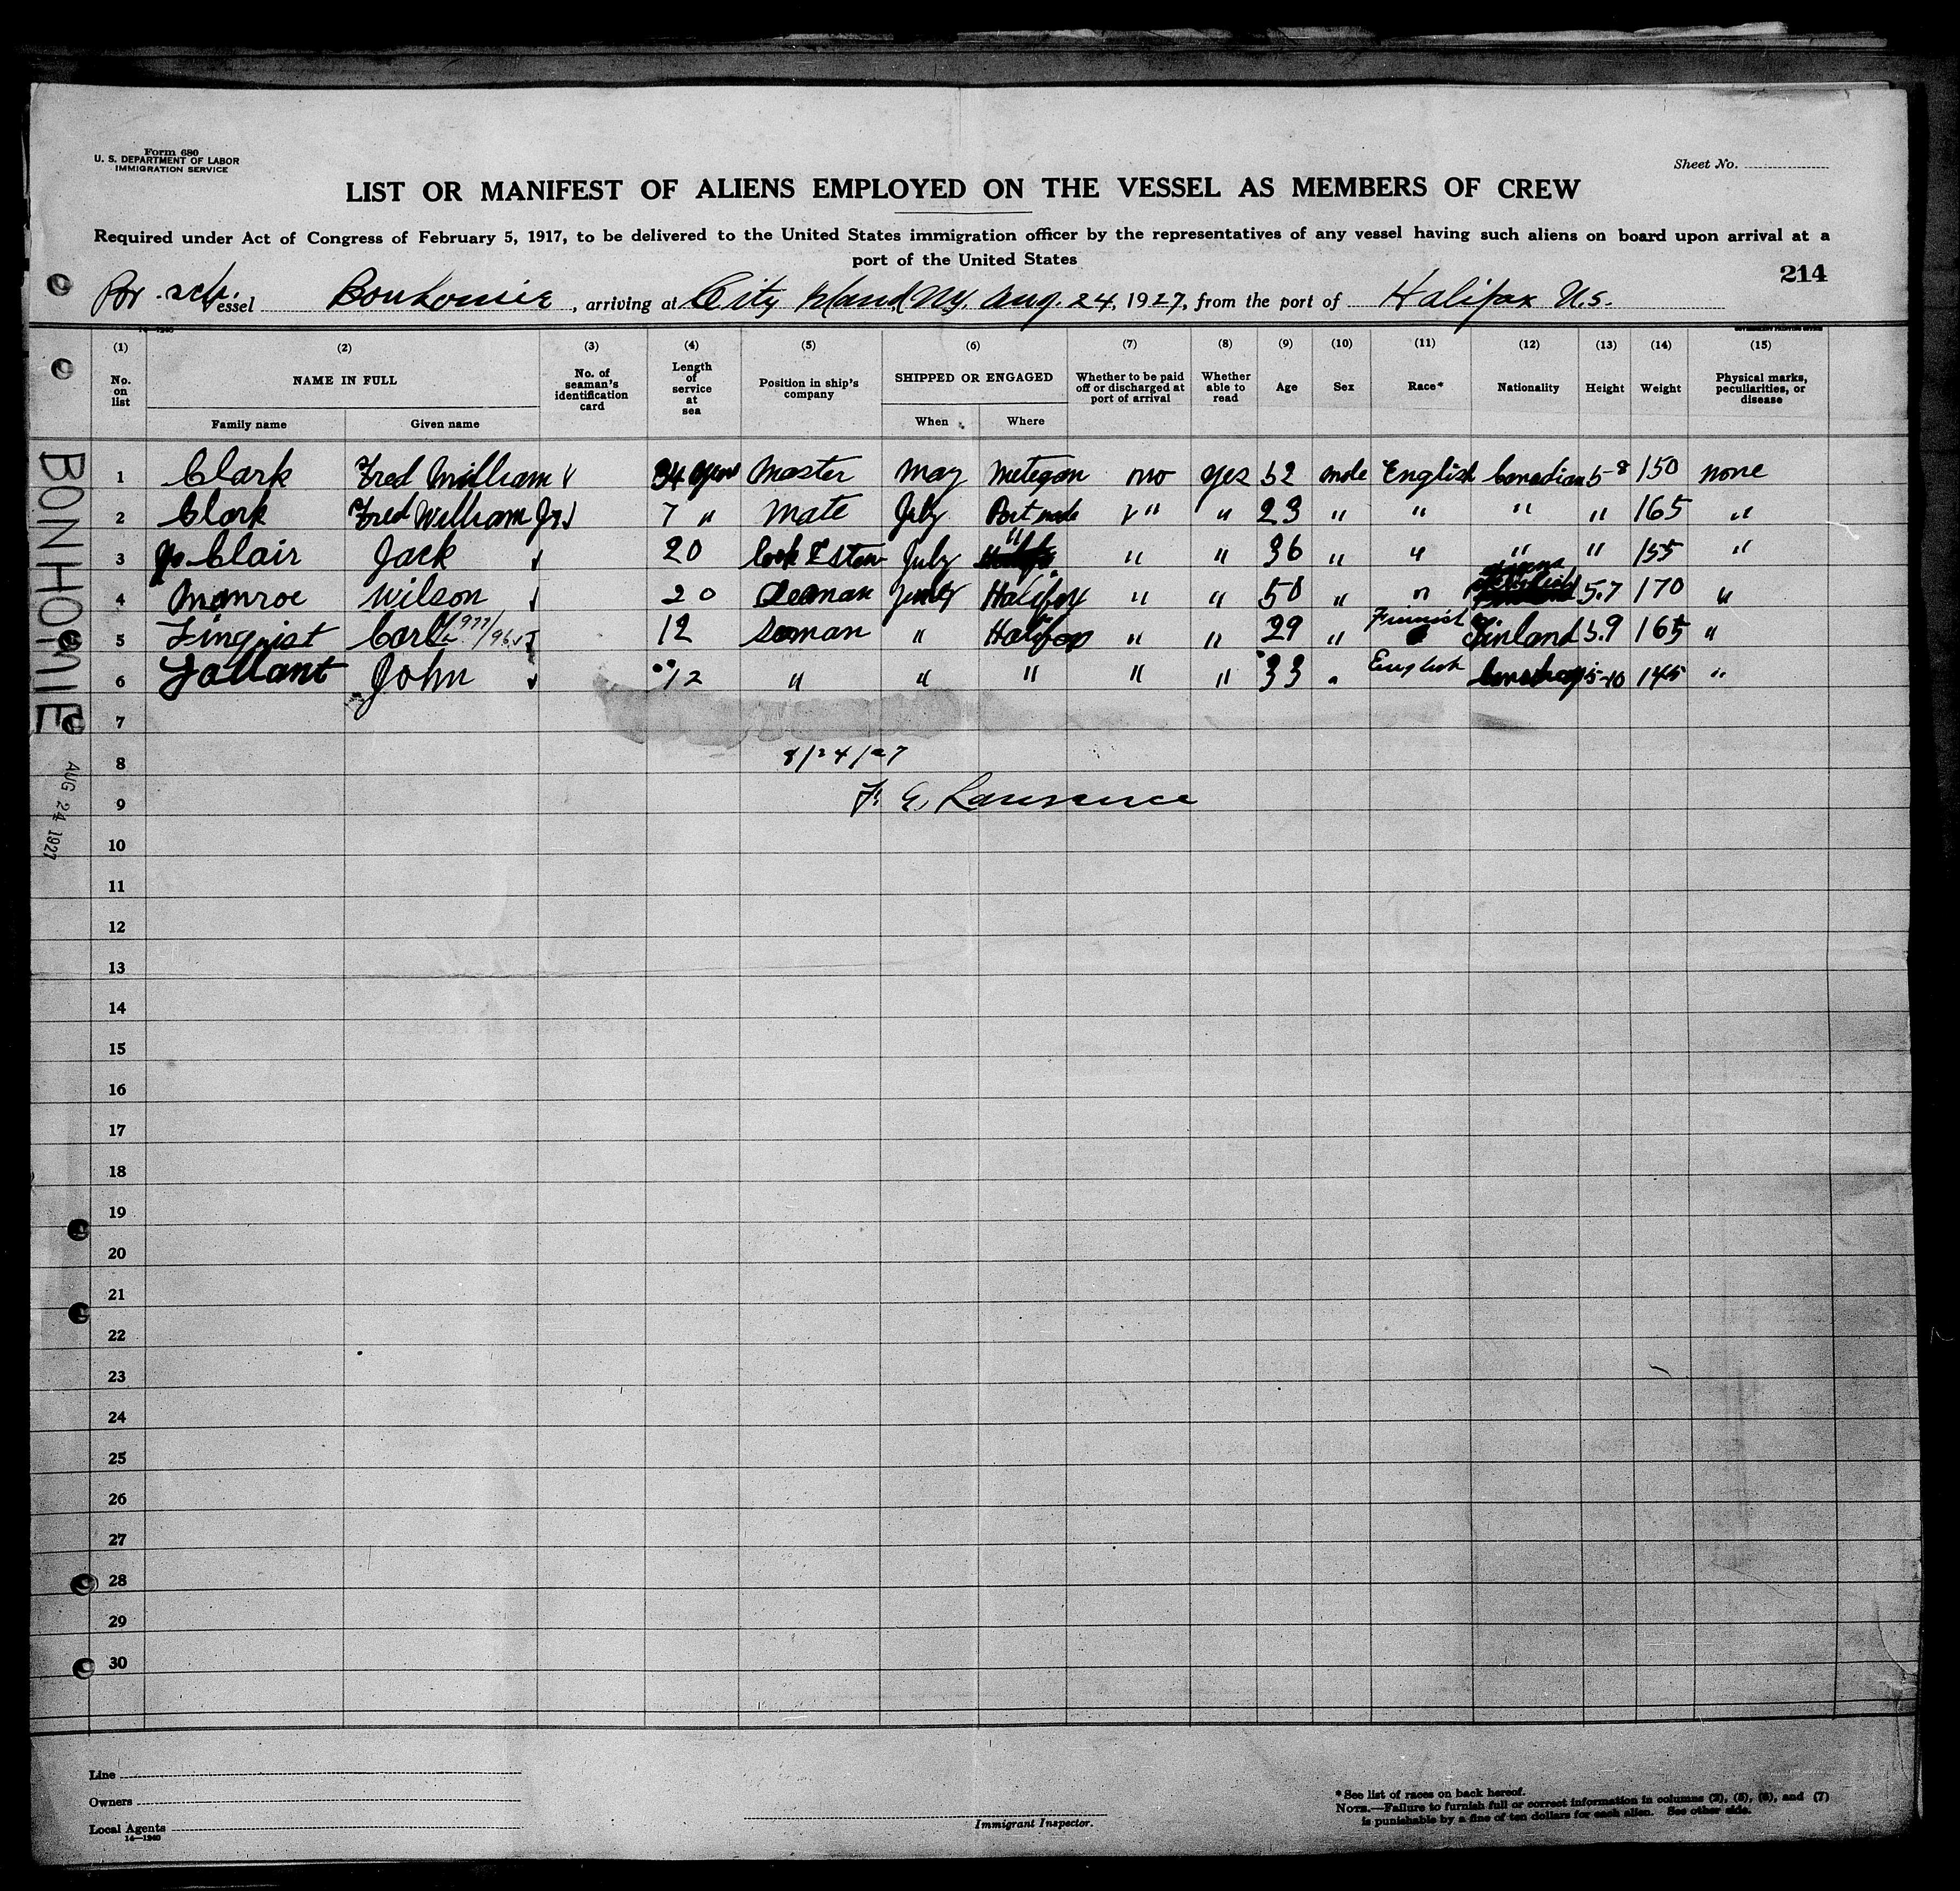 Form 680
U. S. DEPARTMENT OF LABOR
IMMIGRATION SERVICE
Sheet No.
LIST OR MANIFEST OF ALIENS EMPLOYED ON THE VESSEL AS MEMBERS OF CREW
Required under Act of Congress of February 5, 1917, to be delivered to the United States immigration officer by the representatives of any vessel having such aliens on board upon arrival at a
port of the United States
214
Br. sch. Vessel , arriving at City Island, NY. Aug. 24, 1927, from the port of Halifax N.S.
14-1240
(1) (2) (3) (4) (5) (6) (7) (8) (9) (10) (11) (12) (13) (14) (15)
No. on list NAME IN FULL No. of seaman's identification card Length of service at sea Position in ship's company SHIPPED OR ENGAGED Whether to be paid off or discharged at port of arrival Whether able to read Age Sex Race* Nationality Height Weight Physical marks, peculiarities, or disease
Family name Given name When Where
1 Clark Fred William √ 34 years Master May Metegan no yes 52 male English Canadian 5-8 150 none
2 Clark Fred William Jr √ 7 " Mate July Port " " 23 " " " " 165 "
3 Clair Jack √ 20 Cook & Stew July " " " 36 " " " " 155 "
4 Monroe Wilson √ 20 Seaman Halifax " " 50 " " 5.7 170 "
5 Linquist Carl √ 12 Seaman " Halifax " " 29 " Finnish Finland 5.9 165 "
6 Gallant John √ 12 " " " " " 33 " English 5-10 145 "
7
8 8/24/27
9 F. E. Lawrence
10
11
12
13
14
15
16
17
18
19
20
21
22
23
24
25
26
27
28
29
30
BONHOMIE
AUG 24 1927
Line
Owners
Local Agents
14—1240
Immigrant Inspector.
* See list of races on back hereof.
NOTE.—Failure to furnish full or correct information in columns (2), (5), (6), and (7)
is punishable by a fine of ten dollars for each alien. See other side.